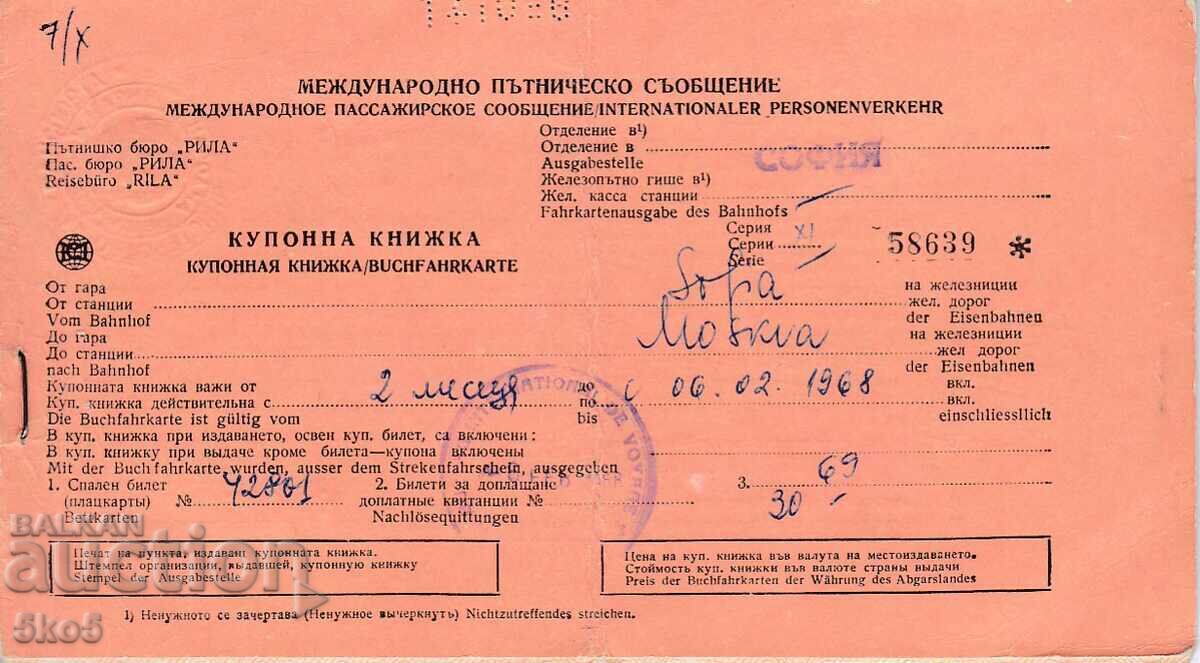 7/X
МЕЖДУНАРОДНО ПЪТНИЧЕСКО СЪОБЩЕНИЕ
МЕЖДУНАРОДНОЕ ПАССАЖИРСКОЕ СООБЩЕНИЕ/INTERNATIONALER PERSONENVERKEHR
Пътнишко бюро „РИЛА“
Пас. бюро „РИЛА“
Reisebüro „RILA“
Отделение в¹)
Отделение в
Ausgabestelle
СОФИЯ
Железопътно гише в¹)
Жел. касса станции
Fahrkartenausgabe des Bahnhofs
КУПОННА КНИЖКА
КУПОННАЯ КНИЖКА/BUCHFAHRKARTE
Серия
Серии XI 58639 *
Série
От гара на железници
От станции София жел. дорог
Vom Bahnhof der Eisenbahnen
До гара на железници
До станции Москва жел дорог
nach Bahnhof der Eisenbahnen
Купонната книжка важи от до вкл.
Куп. книжка действительна с 2 месеца по 06.02.1968 вкл.
Die Buchfahrkarte ist gültig vom bis einschliesslich
В куп. книжка при издаването, освен куп. билет, са включени:
В куп. книжку при выдаче кроме билета—купона включены
Mit der Buchfahrkarte wurden, ausser dem Strekenfahrschein, ausgegeben
1. Спален билет 2. Билети за доплащане 3. 69
(плацкарты) № 42801 доплатные квитанции № 30
Bettkarten Nachlösequittungen
Печат на пункта, издаващ купонната книжка.
Штемпел организации, выдавшей, купонную книжку
Stempel der Ausgabestelle
Цена на куп. книжка във валута на местоиздаването.
Стоимость куп. книжки във валюте страны выдачи
Preis der Buchfahrkarten der Währung des Abgarslandes
1) Ненужното се зачертава (Ненужное вычеркнуть) Nichtzutreffendes streichen.
BALKAN
auction
5ko5